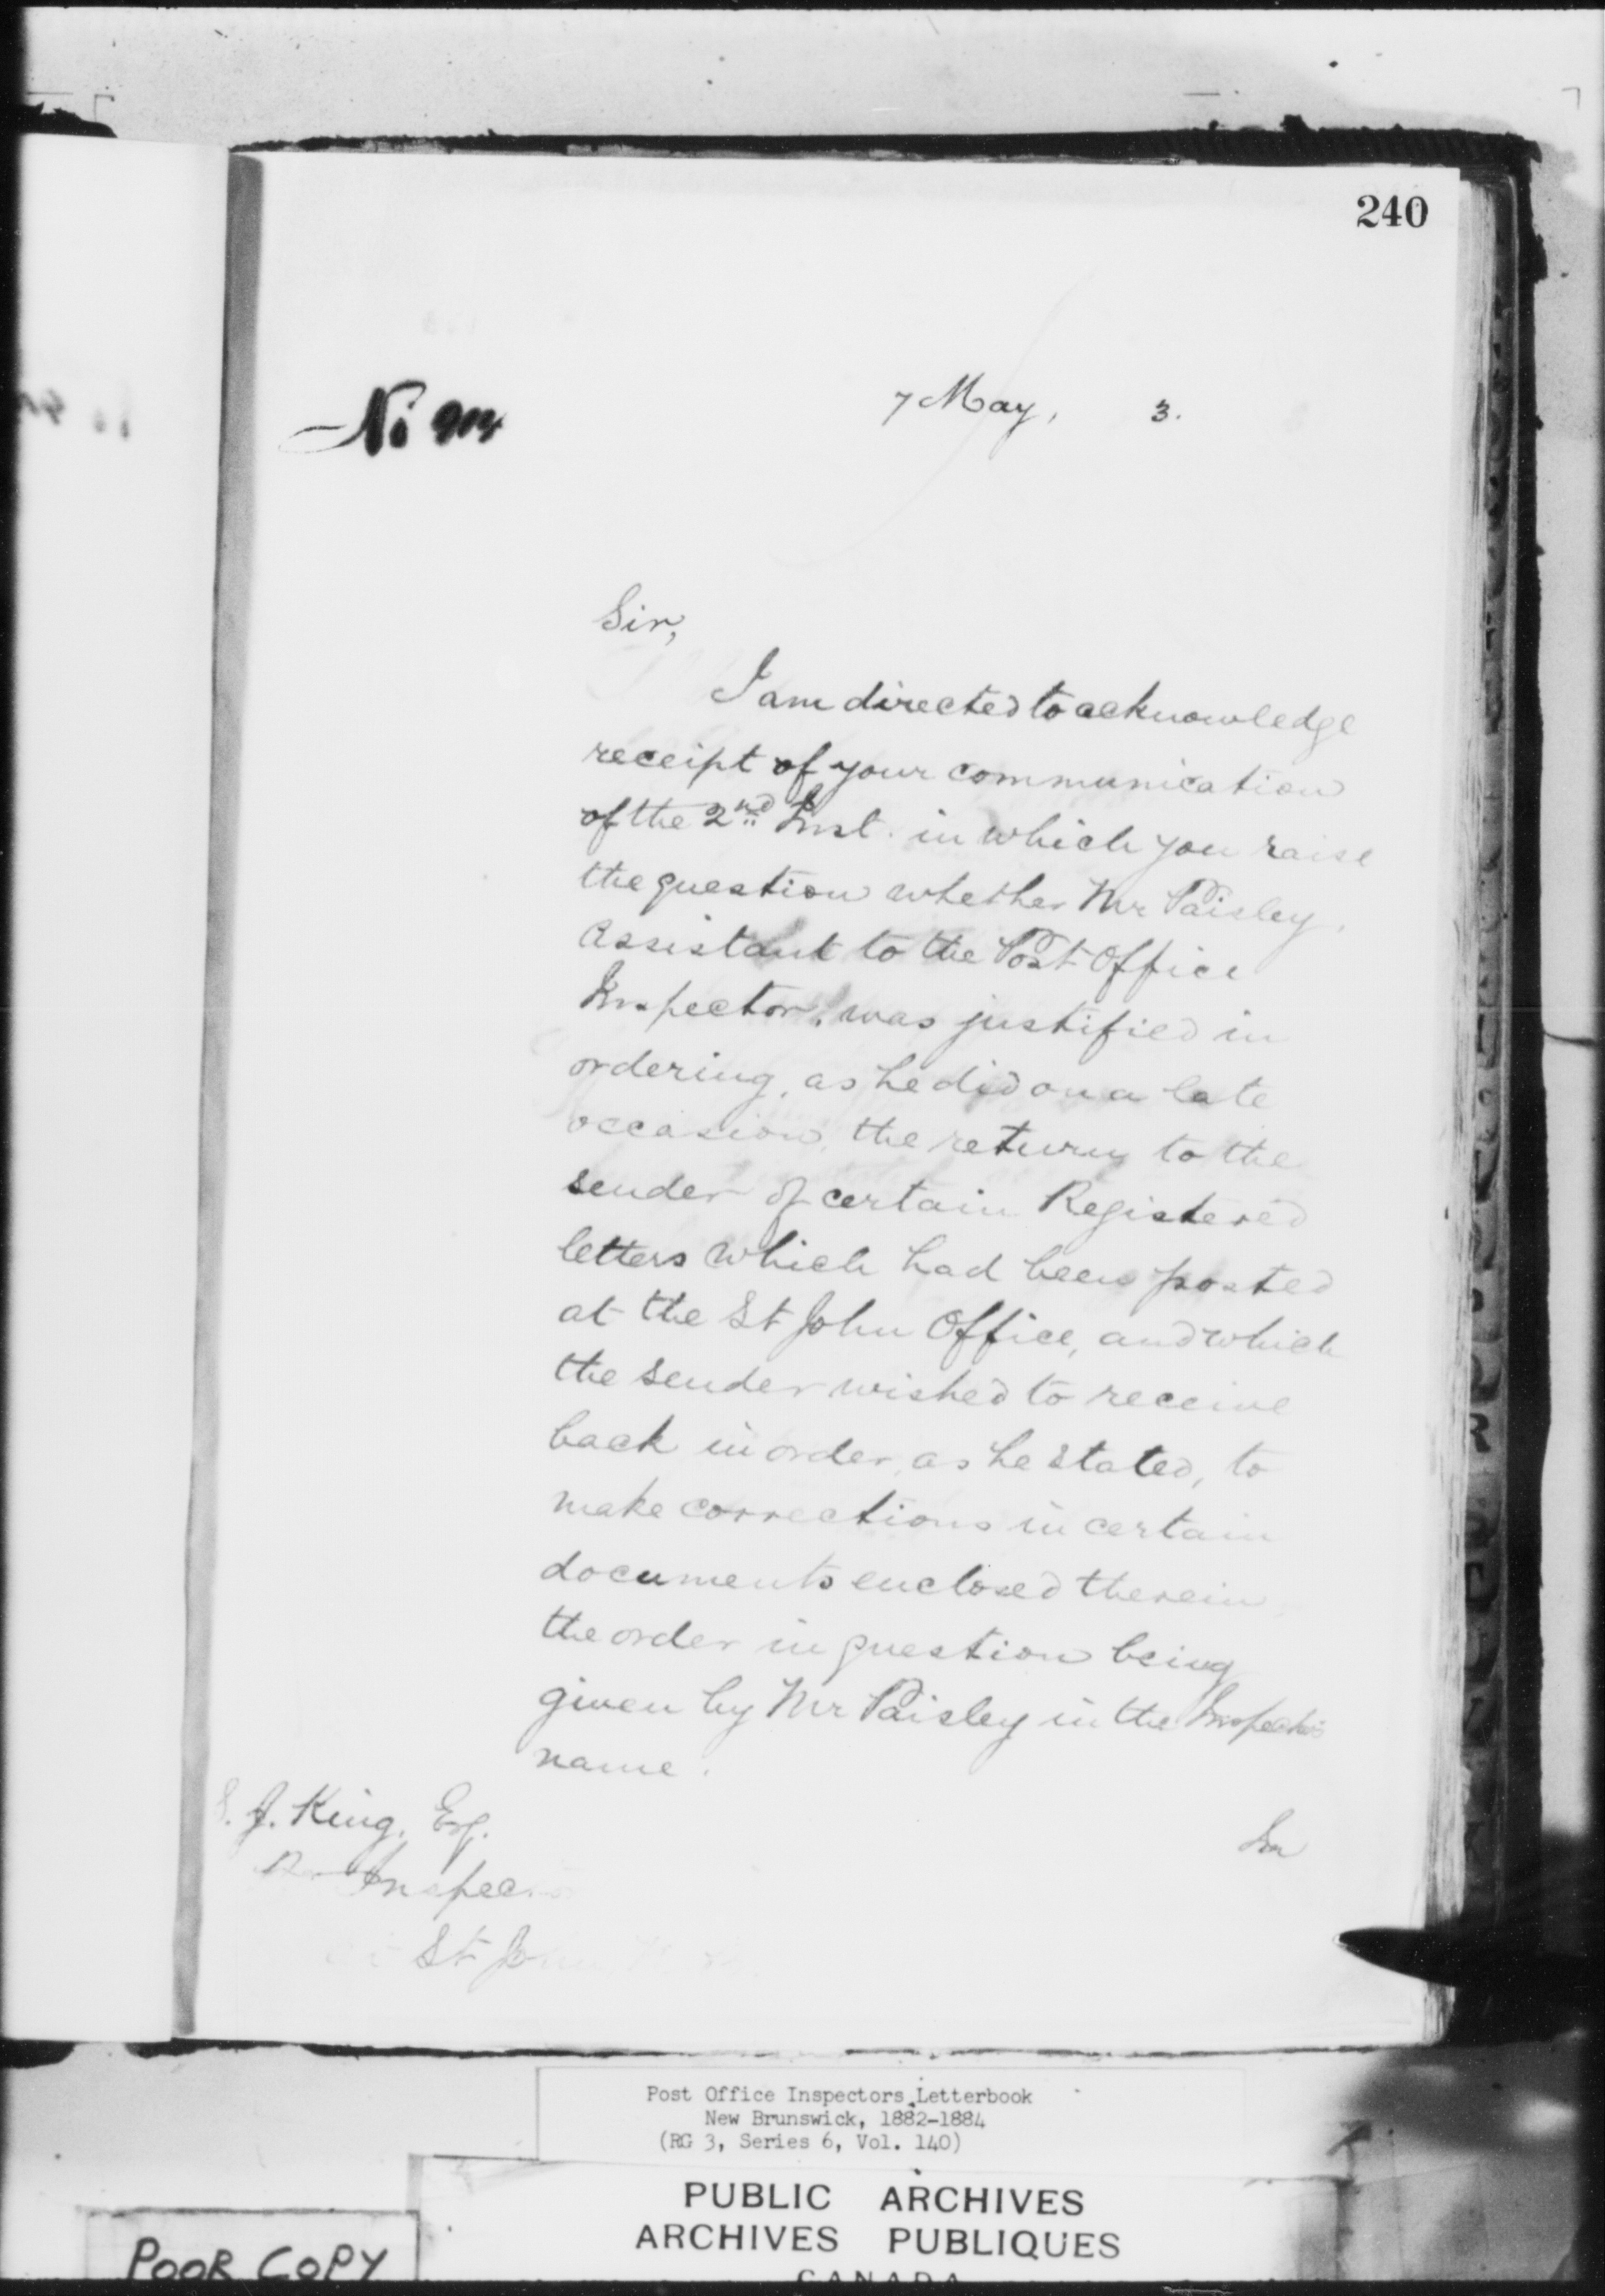 240
7 May, 3.
No
Sir,
I am directed to acknowledge
receipt of your communication
of the 2nd Inst. in which you raise
the question whether Mr Paisley,
Assistant to the Post Office
Inspector, was justified in
ordering, as he did on a late
occasion, the return to the
sender of certain Registered
letters which had been posted
at the St John Office, and which
the sender wished to receive
back in order, as he stated, to
make corrections in certain
documents enclosed therein,
the order in question being
given by Mr Paisley in the Inspector's
name.
J. King, Esq.
In
St John
Post Office Inspectors Letterbook
New Brunswick, 1882-1884
(RG 3, Series 6, Vol. 140)
PUBLIC ARCHIVES
ARCHIVES PUBLIQUES
CANADA
POOR COPY